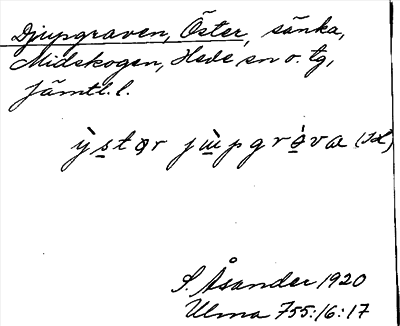 Djupgraven, Öster, sänka,
Midskogen, Hede sn o. tg,
Jämtl. l.
ỳstər jɯ̀pgràva
S. Åsander 1920
Ulma 755:16:17